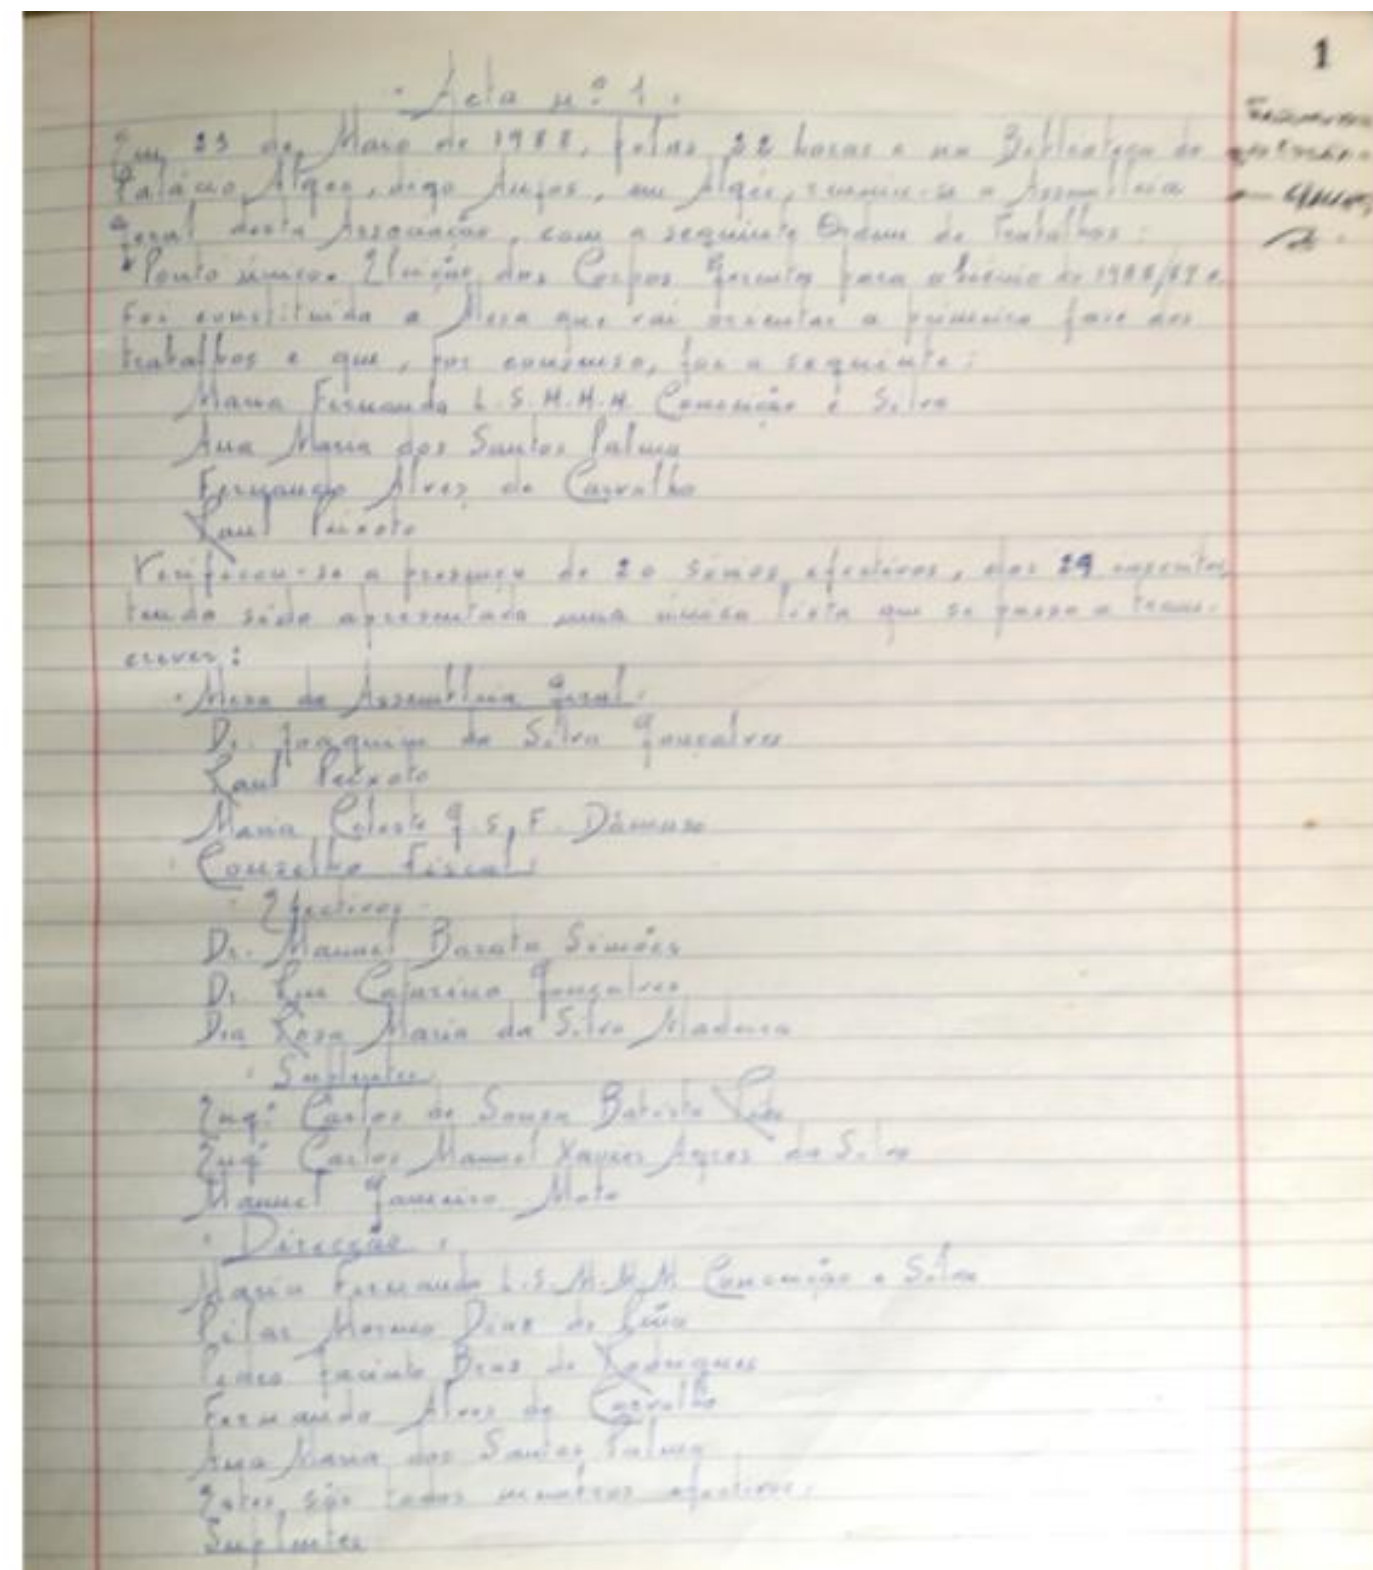 1
Acta nº 1
Em 23 de Maio de 1988, pelas 22 horas e na Biblioteca do
Palácio Algés, digo Anjos, em Algés, reuniu-se a Assembleia
Geral desta Associação, com a seguinte Ordem de Trabalhos:
Ponto único. Eleição dos Corpos Gerentes para o biénio de 1988/89.
Foi constituida a Mesa que vai orientar a primeira fase dos
trabalhos e que, por consenso, foi a seguinte:
Maria Fernanda L.S.M.M.M. Conceição e Silva
Ana Maria dos Santos Palma
Fernando Alves de Carvalho
Raul Peixoto
Verificou-se a presença de 20 sócios efectivos, dos 29 inscritos,
tendo sido apresentada uma única lista que se passa a trans-
crever:
Mesa da Assembleia Geral
Dr. Joaquim da Silva Gonçalves
Raul Peixoto
Maria Celeste G.S.F. Dâmaso
Conselho Fiscal
Efectivos
Dr. Manuel Barata Simões
Dr. Gonçalves
Dra Rosa Maria da Silva Madeira
Suplentes
Engº Carlos de Sousa Batista
Engº Carlos Manuel Xavier da Silva
Manuel Gameiro Mota
Direcção
Maria Fernanda L.S.M.M.M Conceição e Silva
Pilar Moreno Diaz de
Pedro Jacinto Bras de Rodrigues
Fernando Alves de Carvalho
Ana Maria dos Santos Palma
Estes são todos membros efectivos.
Suplentes